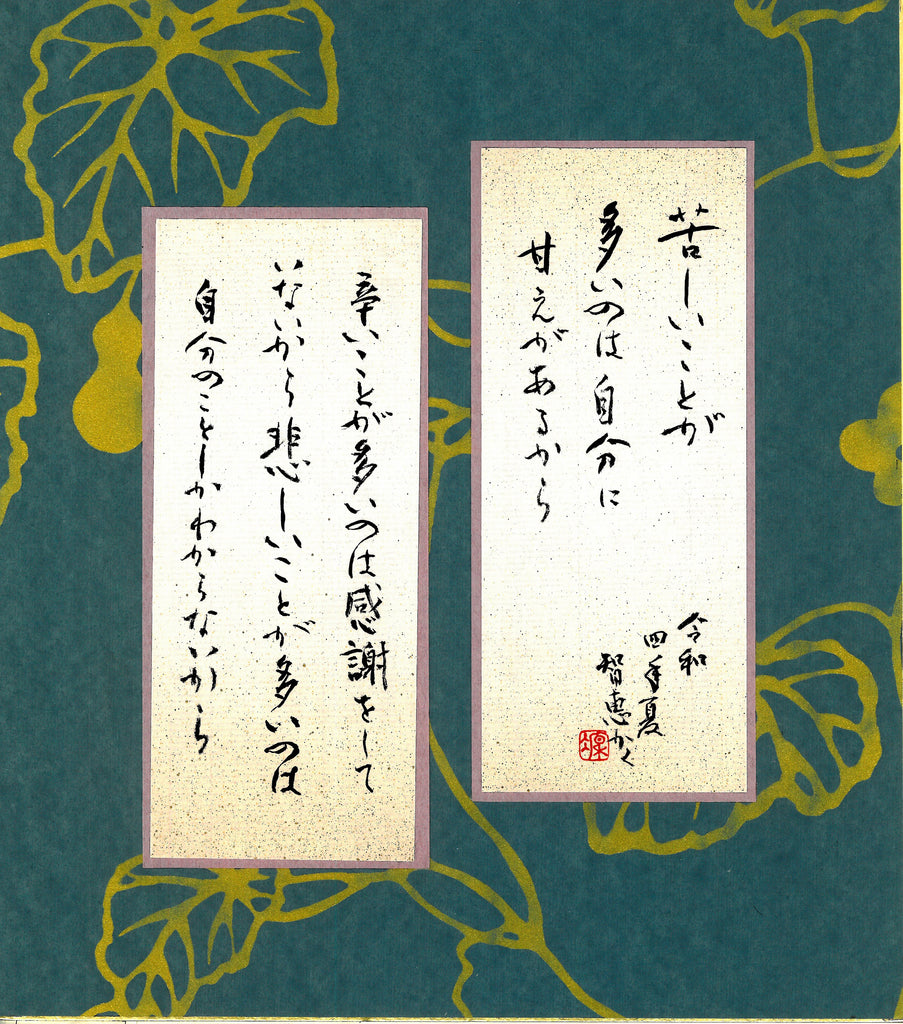 苦しいことが
多いのは自分に
甘えがあるから
令和
四年夏
智恵かく
辛いことが多いのは感謝をして
いないから悲しいことが多いのは
自分のことしかわからないから